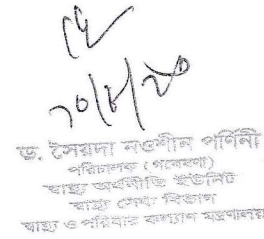 ১০/৮/২০
ড. সৈয়দা নওশীন পর্ণিনী
পরিচালক (গবেষণা)
স্বাস্থ্য অর্থনীতি ইউনিট
স্বাস্থ্য সেবা বিভাগ
স্বাস্থ্য ও পরিবার কল্যাণ মন্ত্রণালয়